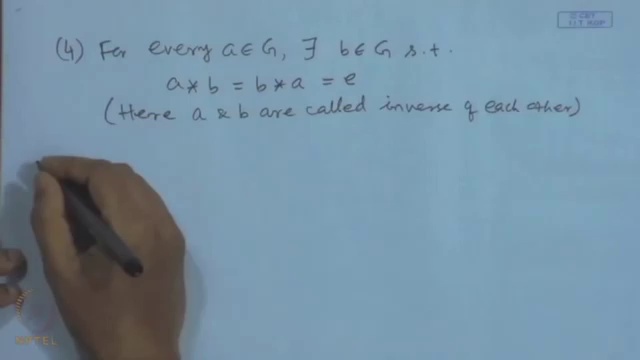 © CET
I.I.T. KGP
(4) For every a ∈ G, ∃ b ∈ G s.t.
a * b = b * a = e
(Here a & b are called inverse of each other)
NPTEL